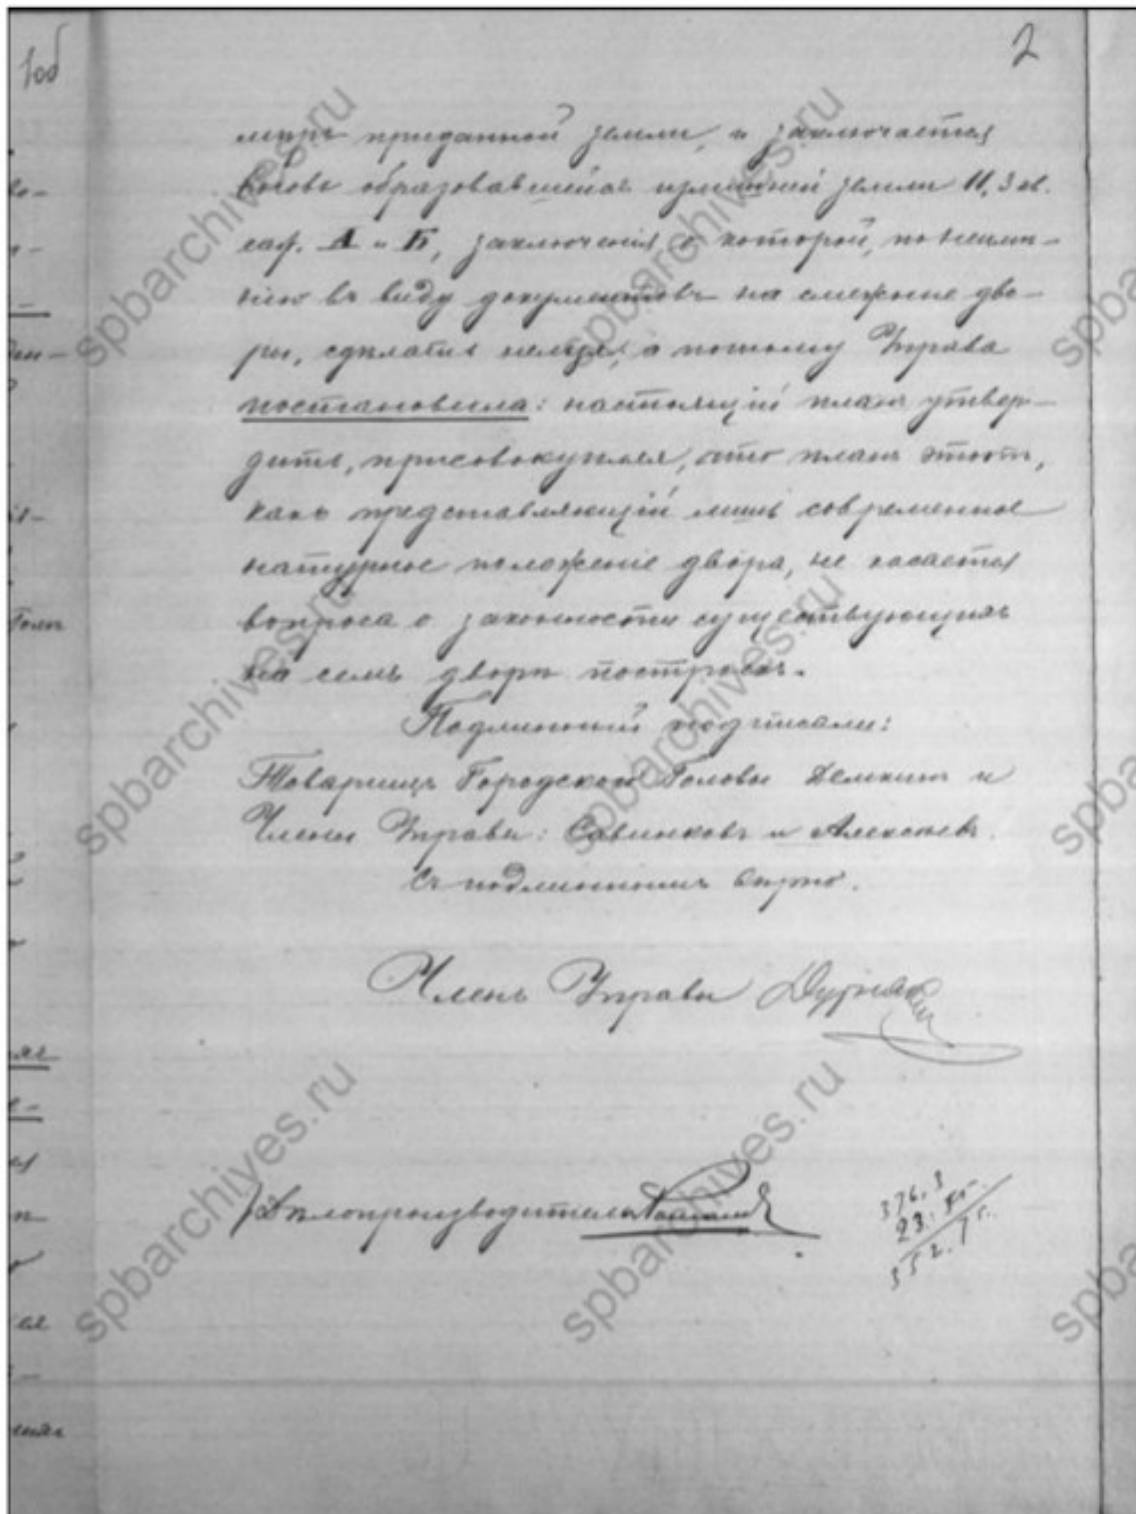 1об
2
мѣръ приданной земли, и заключается
вновь образовавшейся излишней земли 11,3 кв.
саж. А и Б, заключенія о которой, по неимѣ-
нію въ виду документовъ на смежные дво-
ры, сдѣлать нельзя, а потому Управа
постановила: настоящій планъ утвер-
дить, присовокупляя, что планъ этотъ,
какъ представляющій лишь современное
натурное положеніе двора, не касается
вопроса о законности существующихъ
на семъ дворѣ построекъ.
Подлинный подписали:
Товарищъ Городского Головы Демкинъ и
Члены Управы: Савинковъ и Алексѣевъ.
Съ подлиннымъ вѣрно.
Членъ Управы
Дѣлопроизводитель
376,3
352.7
spbarchives.ru
spbarchives.ru
spbarchives.ru
spbarchives.ru
spbarchives.ru
spbarchives.ru